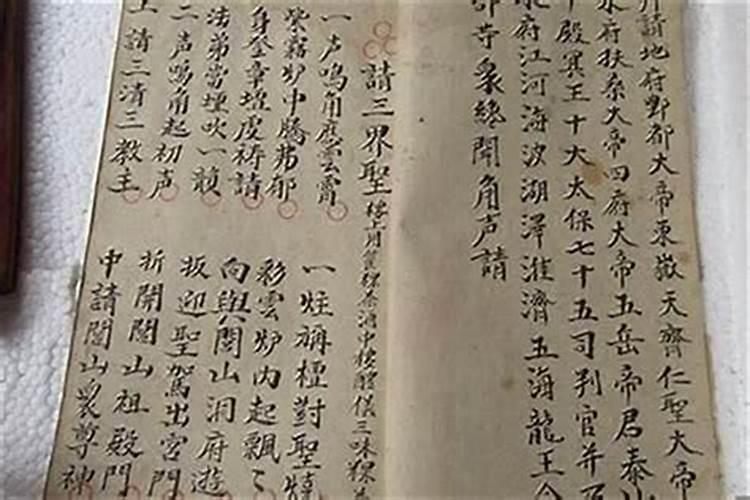 請地府酆都大帝東嶽天齊仁聖大帝
水府扶桑大帝四府大帝五岳帝君泰山
殿冥王十大太保七十五司判官并
府江河海波湖澤淮濟五海龍王
寺衆終聞角声請
請三界聖
樓上用茶酒中樓醒儀三味
一声鳴角應雲霄 一炷稱檀對聖燒
紫霧炉中騰弗郁 彩雲炉内起飄々
身登章壇虔祷請 向與閭山洞府遊
法弟當壇吹一 扳迎聖駕出宮門
二声鳴角起初声 折開閭山祖殿門
上請三清三教主 中請閭山衆尊神